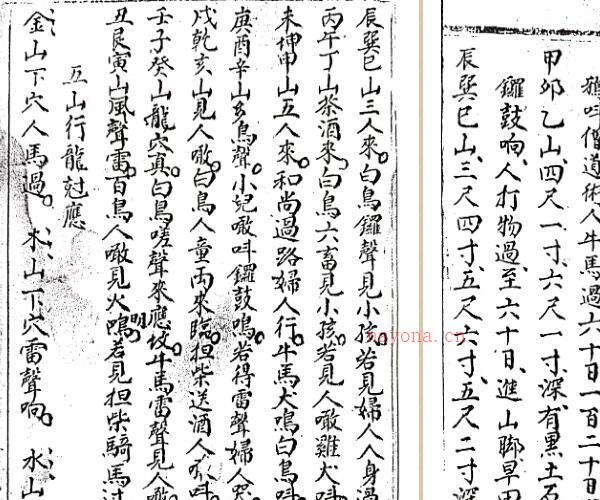 雅叫僧道術人牛馬過六十日一百二十日
甲卯乙山四尺一寸六尺一寸深有黑土石
鑼鼓响人打物過至六十日進山脚早田
辰巽巳山三尺四寸五尺六寸五尺二寸深
辰巽巳山三人來白鳥鑼聲見小孩若見婦人人身過
丙午丁山茶酒來白鳥六畜見小孩若見人噉雞犬叫
未坤申山五人來和尚過路婦人行牛馬犬鳴白鳥叫
庚酉辛山玄鳥聲小兒噉叫鑼鼓鳴若得雷聲婦人
戌乾亥山見人噉白鳥人童雨來臨担柴送酒人叫
壬子癸山龍穴真白鳥嗟聲來應坟牛馬雷聲見人噉
丑艮寅山風聲雷百鳥人噉見火鳴若見担柴騎馬过
五山行龍尅應
金山下穴人馬過 木山下穴雷聲响 水山
nayona.cn